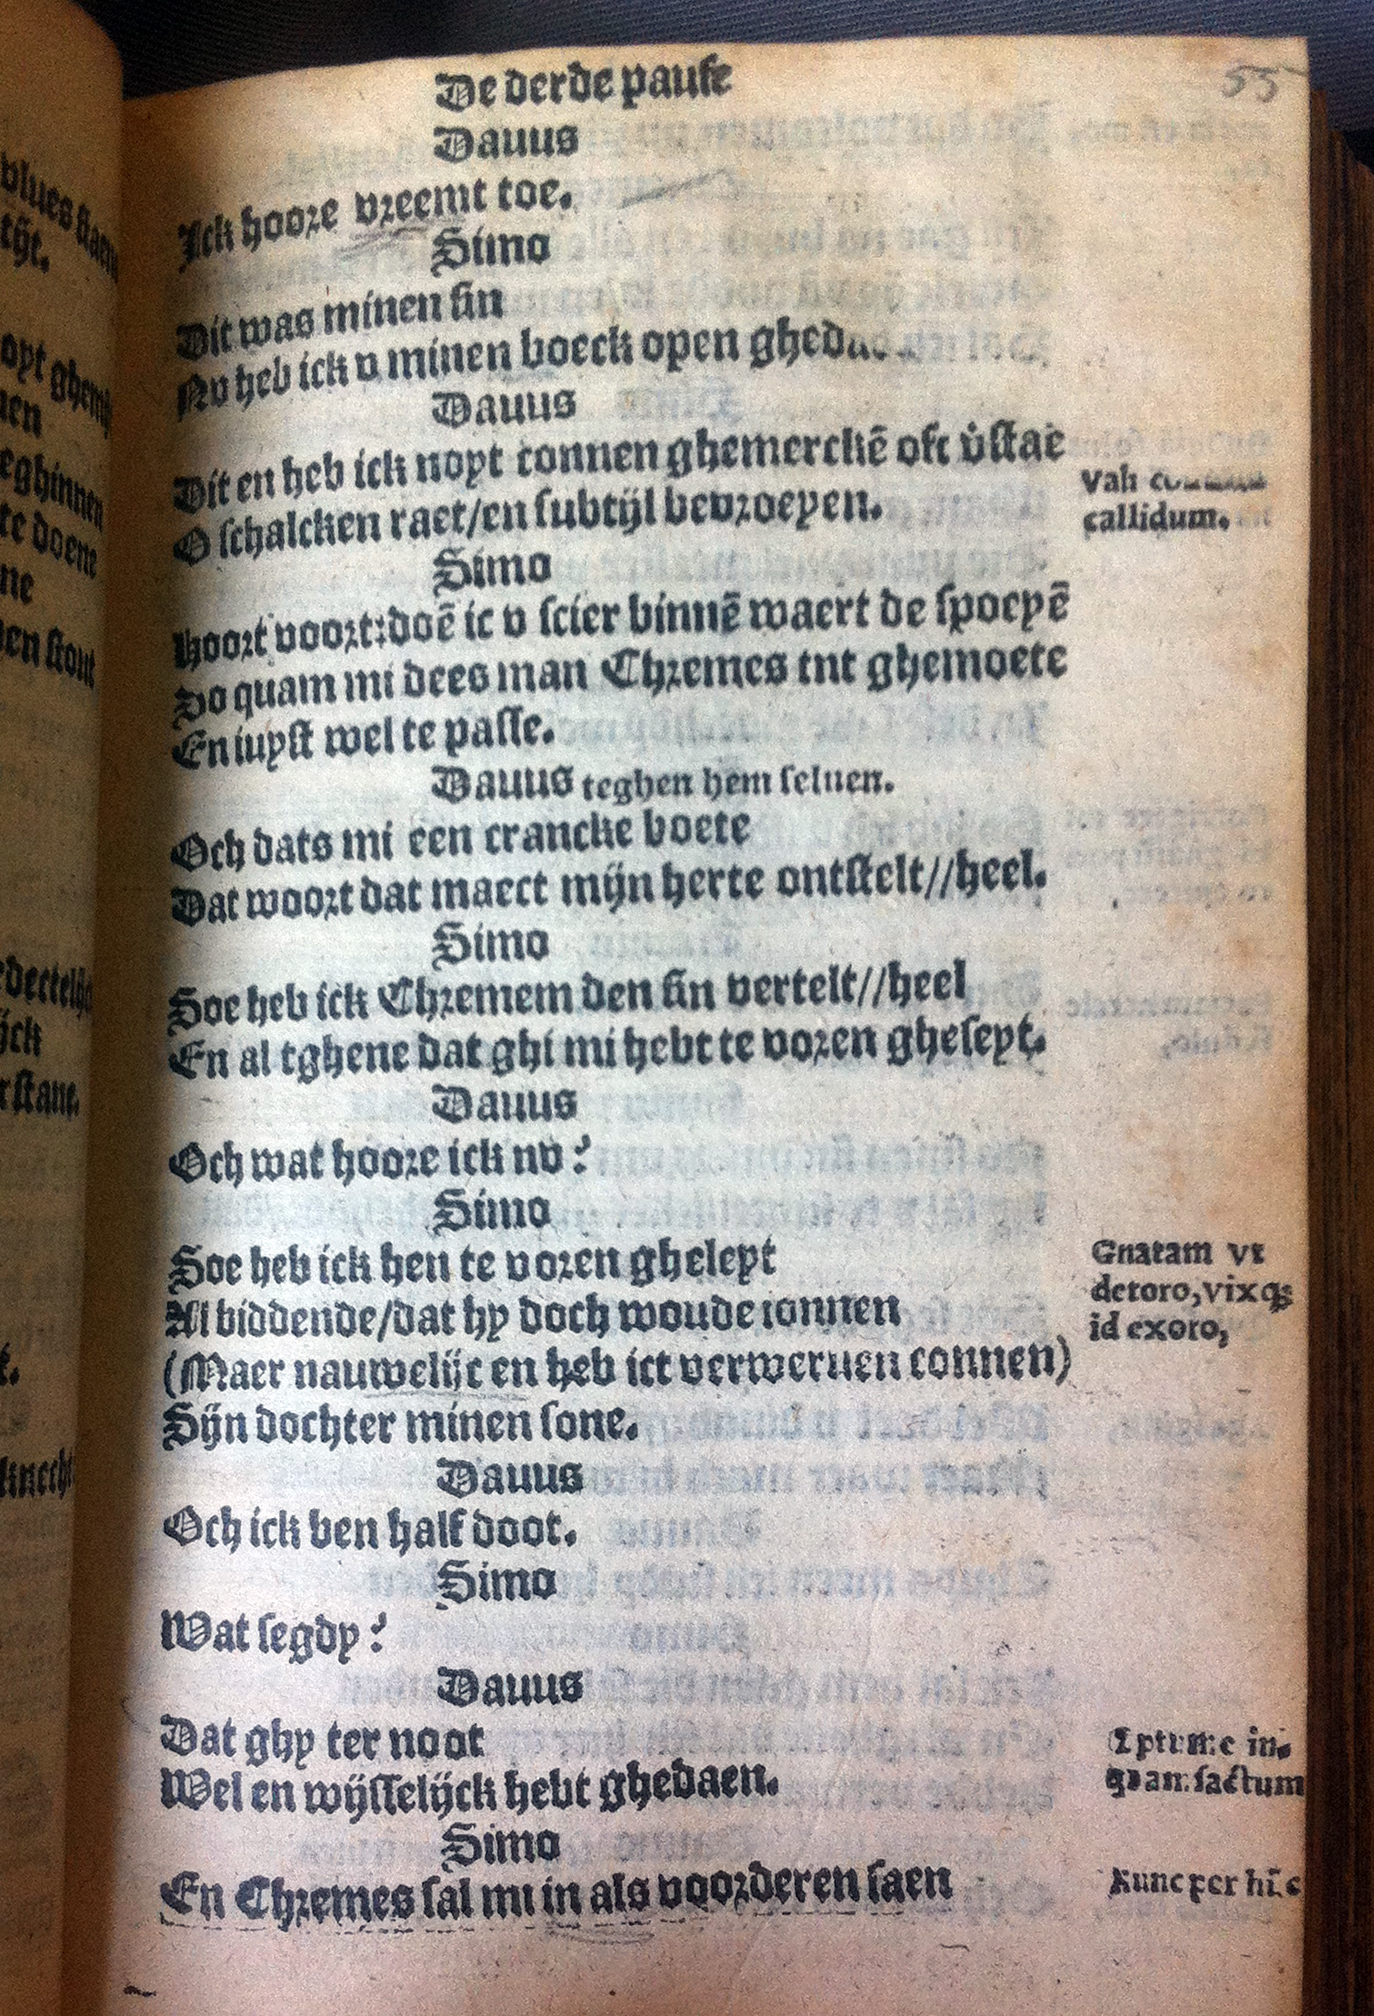 55
De derde pause
Dauus
Ick hoore vreemt toe.
Simo
Dit was minen sin
Nv heb ick v minen boeck open
Dauus
Dit en heb ick noyt connen ghemerckē oft v̄staē
O schalcken raet/en subtijl bevroeyen.
Vah
callidum.
Simo
Hoort voort: doē ic v scier binnē waert de spoeyē
So quam mi dees man Chremes tnt ghemoete
En iuyst wel te passe.
Dauus teghen hem seluen.
Och dats mi een crancke boete
Dat woort dat maect mijn herte ontstelt//heel.
Simo
Soe heb ick Chremem den sin vertelt//heel
En al tghene dat ghi mi hebt te voren gheseyt.
Dauus
Och wat hoore ick nv?
Simo
Soe heb ick hen te voren gheleyt
Al biddende/dat hy doch woude ionnen
(Maer nauwelijc en heb ict verweruen connen)
Sijn dochter minen sone.
Gnatam vt
detoro, vixqȝ
id exoro,
Dauus
Och ick ben half doot.
Simo
Wat segdy?
Dauus
Dat ghy ter noot
Wel en wijsselijck hebt ghedaen.
Optume in-
quam factum
Simo
En Chremes sal mi in als voorderen saen
Nunc per hūc